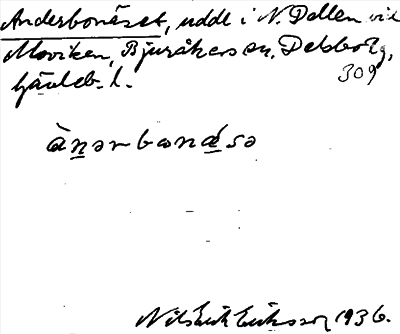 Anderbonäset, udde i N. Dellen vid
Moviken, Bjuråkers sn, Delsbo tg,
309
Gävleb. l.
ànərbonǽsə
Nils Erik Eriksson 1936.